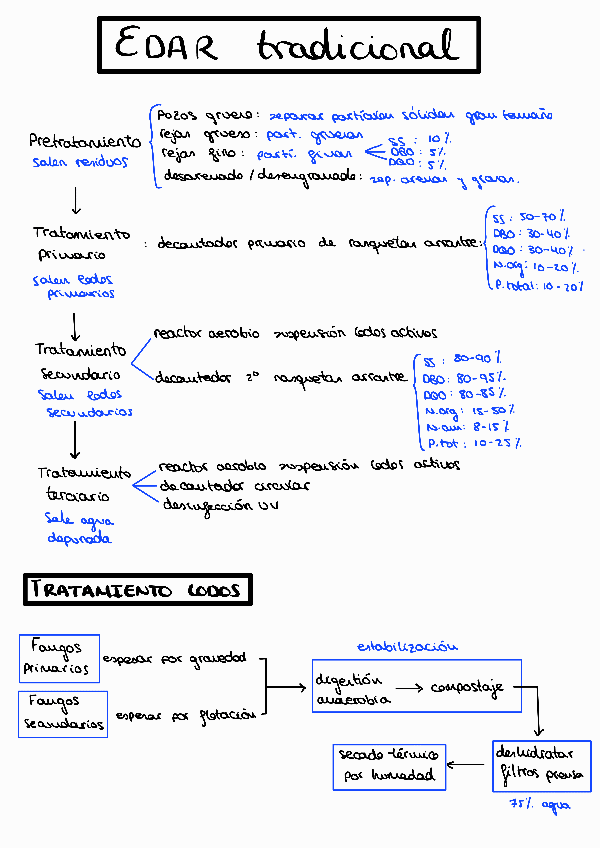 EDAR tradicional
Pretratamiento
salen residuos
Pozos grueso: separar partículas sólidas gran tamaño
rejas grueso: part. gruesas
rejas fino: partí. finas
SS : 10%
DBO : 5%
DQO : 5%
desarenado / desengrasado: sep. arenas y grasas.
Tratamiento
primario
salen lodos
primarios
: decantador primario de rasquetas arrastre:
SS : 50-70%
DBO : 30-40%
DQO : 30-40%
N.org : 10-20%
P.total : 10-20%
Tratamiento
secundario
salen lodos
secundarios
reactor aerobio suspensión lodos activos
decantador 2º rasquetas arrastre
SS : 80-90%
DBO: 80-95%
DQO : 80-85%
N.org : 15-50%
N.am: 8-15%
P.tot : 10-25%
Tratamiento
terciario
Sale agua
depurada
reactor aerobio suspensión lodos activos
decantador circular
desinfección UV
TRATAMIENTO LODOS
Fangos
primarios
espesar por gravedad
Fangos
secundarios
espesar por flotación
estabilización
digestión
anaerobia
compostaje
deshidratar
filtros prensa
75% agua
secado térmico
por humedad